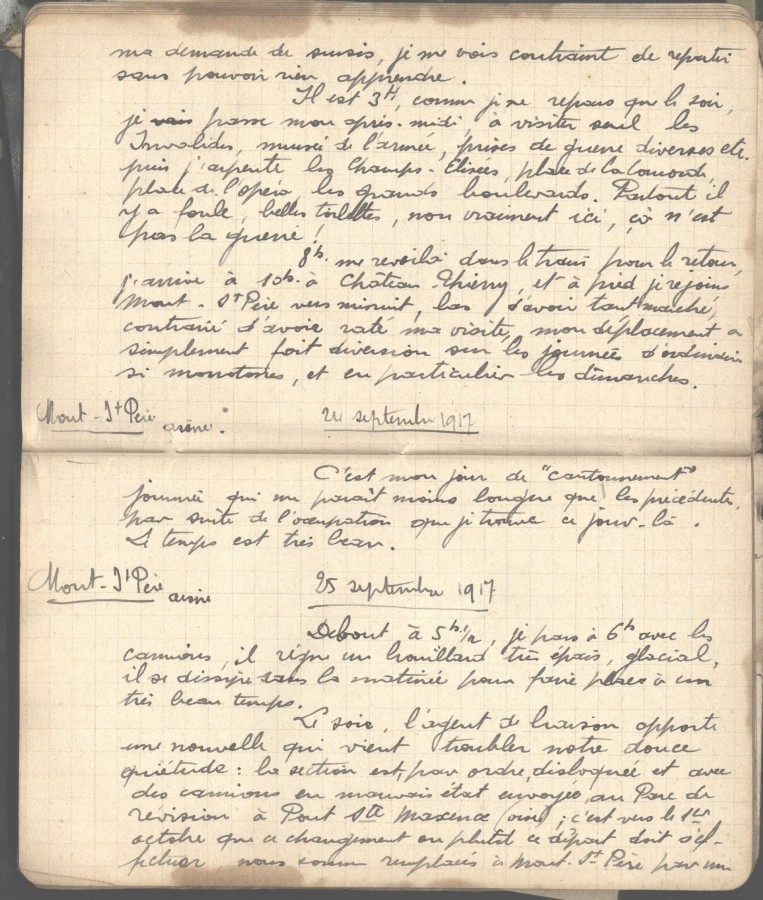 ma demande de sursis, je me vois contraint de repartir
sans pouvoir rien apprendre.
Il est 3H, comme je ne repars que le soir,
je vais passe mon après-midi, à visiter seul les
Invalides, musée de l'armée, prises de guerre diverses etc.
puis j'arpente les Champs-Elisées, place de la Concorde,
place de l'opéra, les grands boulevards. Partout il
y a foule, belles toilettes, non vraiment ici, çà n'est
pas la guerre!
8h. me revoilà dans le train pour le retour,
j'arrive à 10h. à Château-Thierry, et à pied je rejoins
Mont-St Père vers minuit, las d'avoir tant marché,
contrarié d'avoir raté ma visite, mon déplacement a
simplement fait diversion sur les journées d'ordinaire
si monotones, et en particulier les dimanches.
Mont-St Père aisne. 24 septembre 1917
C'est mon jour de "cantonnement"
journée qui me paraît moins longue que les précédentes,
par suite de l'occupation que je trouve ce jour-là.
Le temps est très beau.
Mont-St Père aisne 25 septembre 1917
Debout à 5h 1/2, je pars à 6h avec les
camions, il règne un brouillard très épais, glacial,
il se dissipe dans la matinée pour faire place à un
très beau temps.
Le soir, l'agent de liaison apporte
une nouvelle qui vient troubler notre douce
quiétude: la section est, par ordre, disloquée et avec
des camions en mauvais état envoyée, au Parc de
révision à Pont Ste Maxence (oise); c'est vers le 1er
octobre que ce changement ou plutôt ce départ doit s'ef-
fectuer nous sommes remplacés à Mont-St Père par une